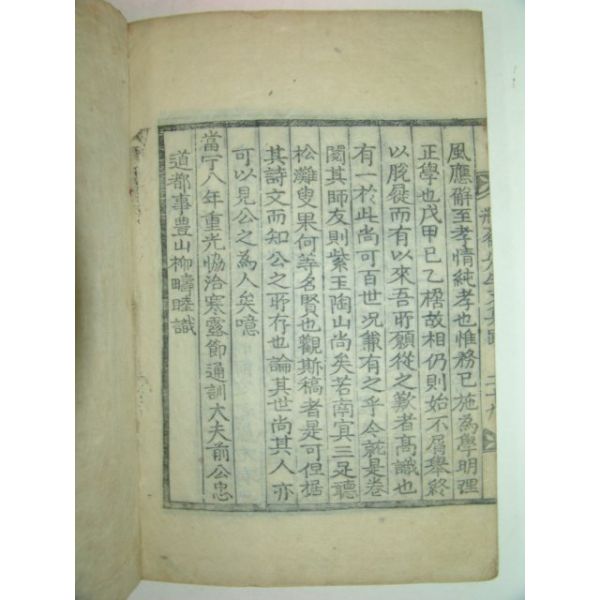 風應辭至孝情純孝也惟務已施為學明理
正學也戊甲已乙樁故相仍則始不屑舉終
以脫屣而有以來吾所願從之歎者高識也
有一於此尚可百世況兼有之乎今就是卷
閱其師友則紫玉陶山尚矣若南冥三足聽
松灘叟果何等名賢也觀斯稿者是可但據
其詩文而知公之所存也論其世尚其人亦
可以見公之為人矣噫
當宁八年重光協洽寒露節通訓大夫前公忠
道都事豊山柳疇睦識